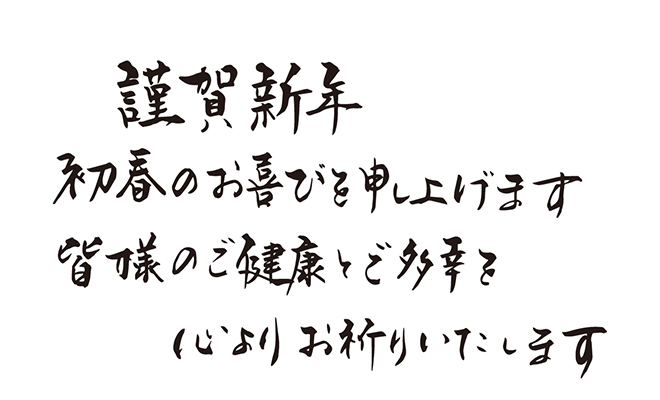 謹賀新年
初春のお喜びを申し上げます
皆様のご健康とご多幸を
心よりお祈りいたします